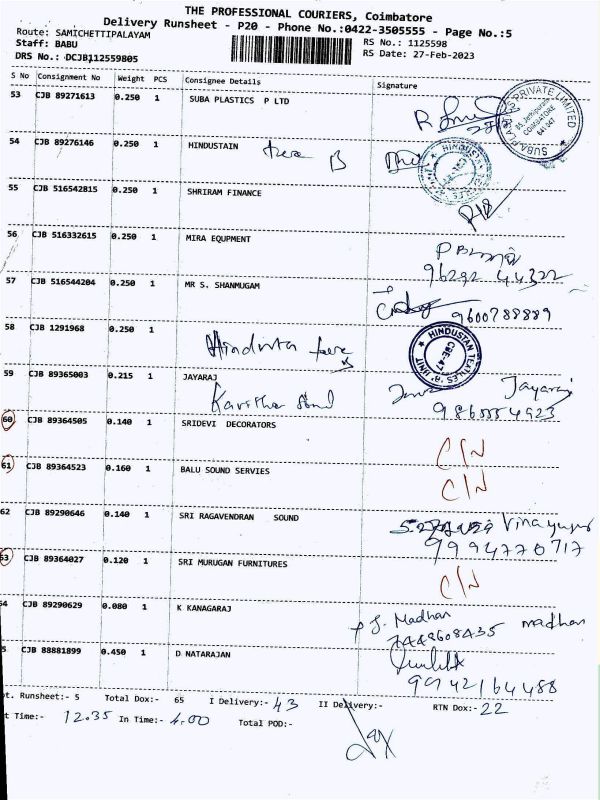 THE PROFESSIONAL COURIERS, Coimbatore
Delivery Runsheet - P20 - Phone No.:0422-3505555 - Page No.:5
Route: SAMICHETTIPALAYAM
Staff: BABU
RS No.: 1125598
DRS No.: DCJB1112559805
RS Date: 27-Feb-2023
S No Consignment No Weight PCS Consignee Details Signature
53 CJB 89271613 0.250 1 SUBA PLASTICS P LTD
SUBA PLASTICS PRIVATE LIMITED COIMBATORE 641 047
54 CJB 89276146 0.250 1 HINDUSTAIN
55 CJB 516542815 0.250 1 SHRIRAM FINANCE
56 CJB 516332615 0.250 1 MIRA EQUPMENT
96292 44322
57 CJB 516544204 0.250 1 MR S. SHANMUGAM
9600788889
58 CJB 1291968 0.250 1
HINDUSTAN TEXTILES 'B' UNIT CBE-47
59 CJB 89365003 0.215 1 JAYARAJ
Jayaraj
60 CJB 89364505 0.140 1 SRIDEVI DECORATORS
C/N
61 CJB 89364523 0.160 1 BALU SOUND SERVIES
C/N
62 CJB 89290646 0.140 1 SRI RAGAVENDRAN SOUND
9994770717
63 CJB 89364027 0.120 1 SRI MURUGAN FURNITURES
C/N
64 CJB 89290629 0.080 1 K KANAGARAJ
J. Madhan madhan
7448608435
5 CJB 88881899 0.450 1 D NATARAJAN
9942164488
ot. Runsheet:- 5 Total Dox:- 65 I Delivery:- 43 II Delivery:- RTN Dox:- 22
t Time:- 12.35 In Time:- 4.00 Total POD:-